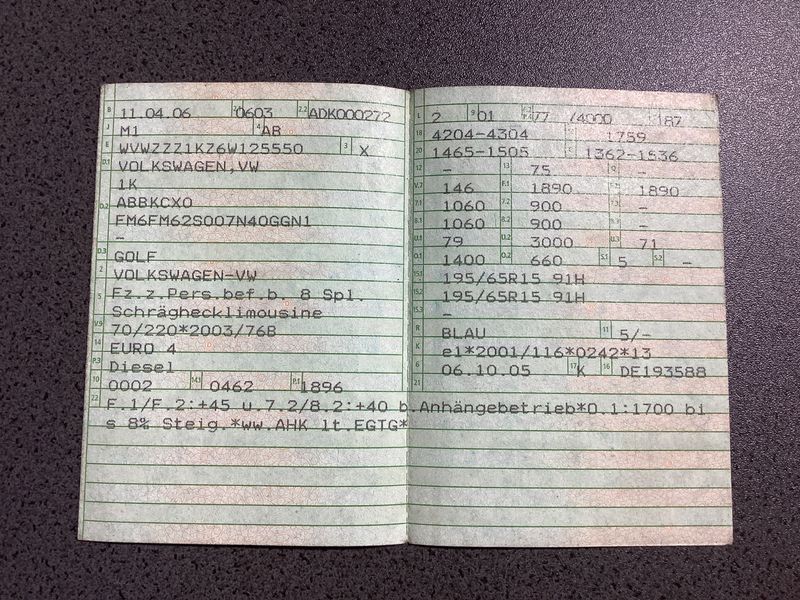 B 11.04.06 2.1 0603 2.2 ADK000272
J M1 4 AR
E WVWZZZ1KZ6W125550 3 X
D.1 VOLKSWAGEN,VW
1K
D.2 ABBKCX0
FM6FM62S007N40GGN1
–
D.3 GOLF
2 VOLKSWAGEN-VW
5 Fz.z.Pers.bef.b. 8 Spl.
Schräghecklimousine
V.9 70/220*2003/76B
14 EURO 4
P.3 Diesel
10 0002 14.1 0462 P.1 1896
L 2 9 01 P.2/P.4 77 /4000 187
18 4204-4304 1759
20 1465-1505 1362-1536
12 – 13 75 Q –
V.7 146 F.1 1890 F.2 1890
7.1 1060 7.2 900 7.3 –
8.1 1060 8.2 900 8.3 –
U.1 79 U.2 3000 U.3 71
O.1 1400 O.2 660 S.1 5 S.2 –
15.1 195/65R15 91H
15.2 195/65R15 91H
15.3 –
R BLAU 11 5/-
K e1*2001/116*0242*13
6 06.10.05 17 K 16 DE193588
21
22 F.1/F.2:+45 u.7.2/8.2:+40 b.Anhängebetrieb*O.1:1700 bi
s 8% Steig.*ww.AHK lt.EGTG*